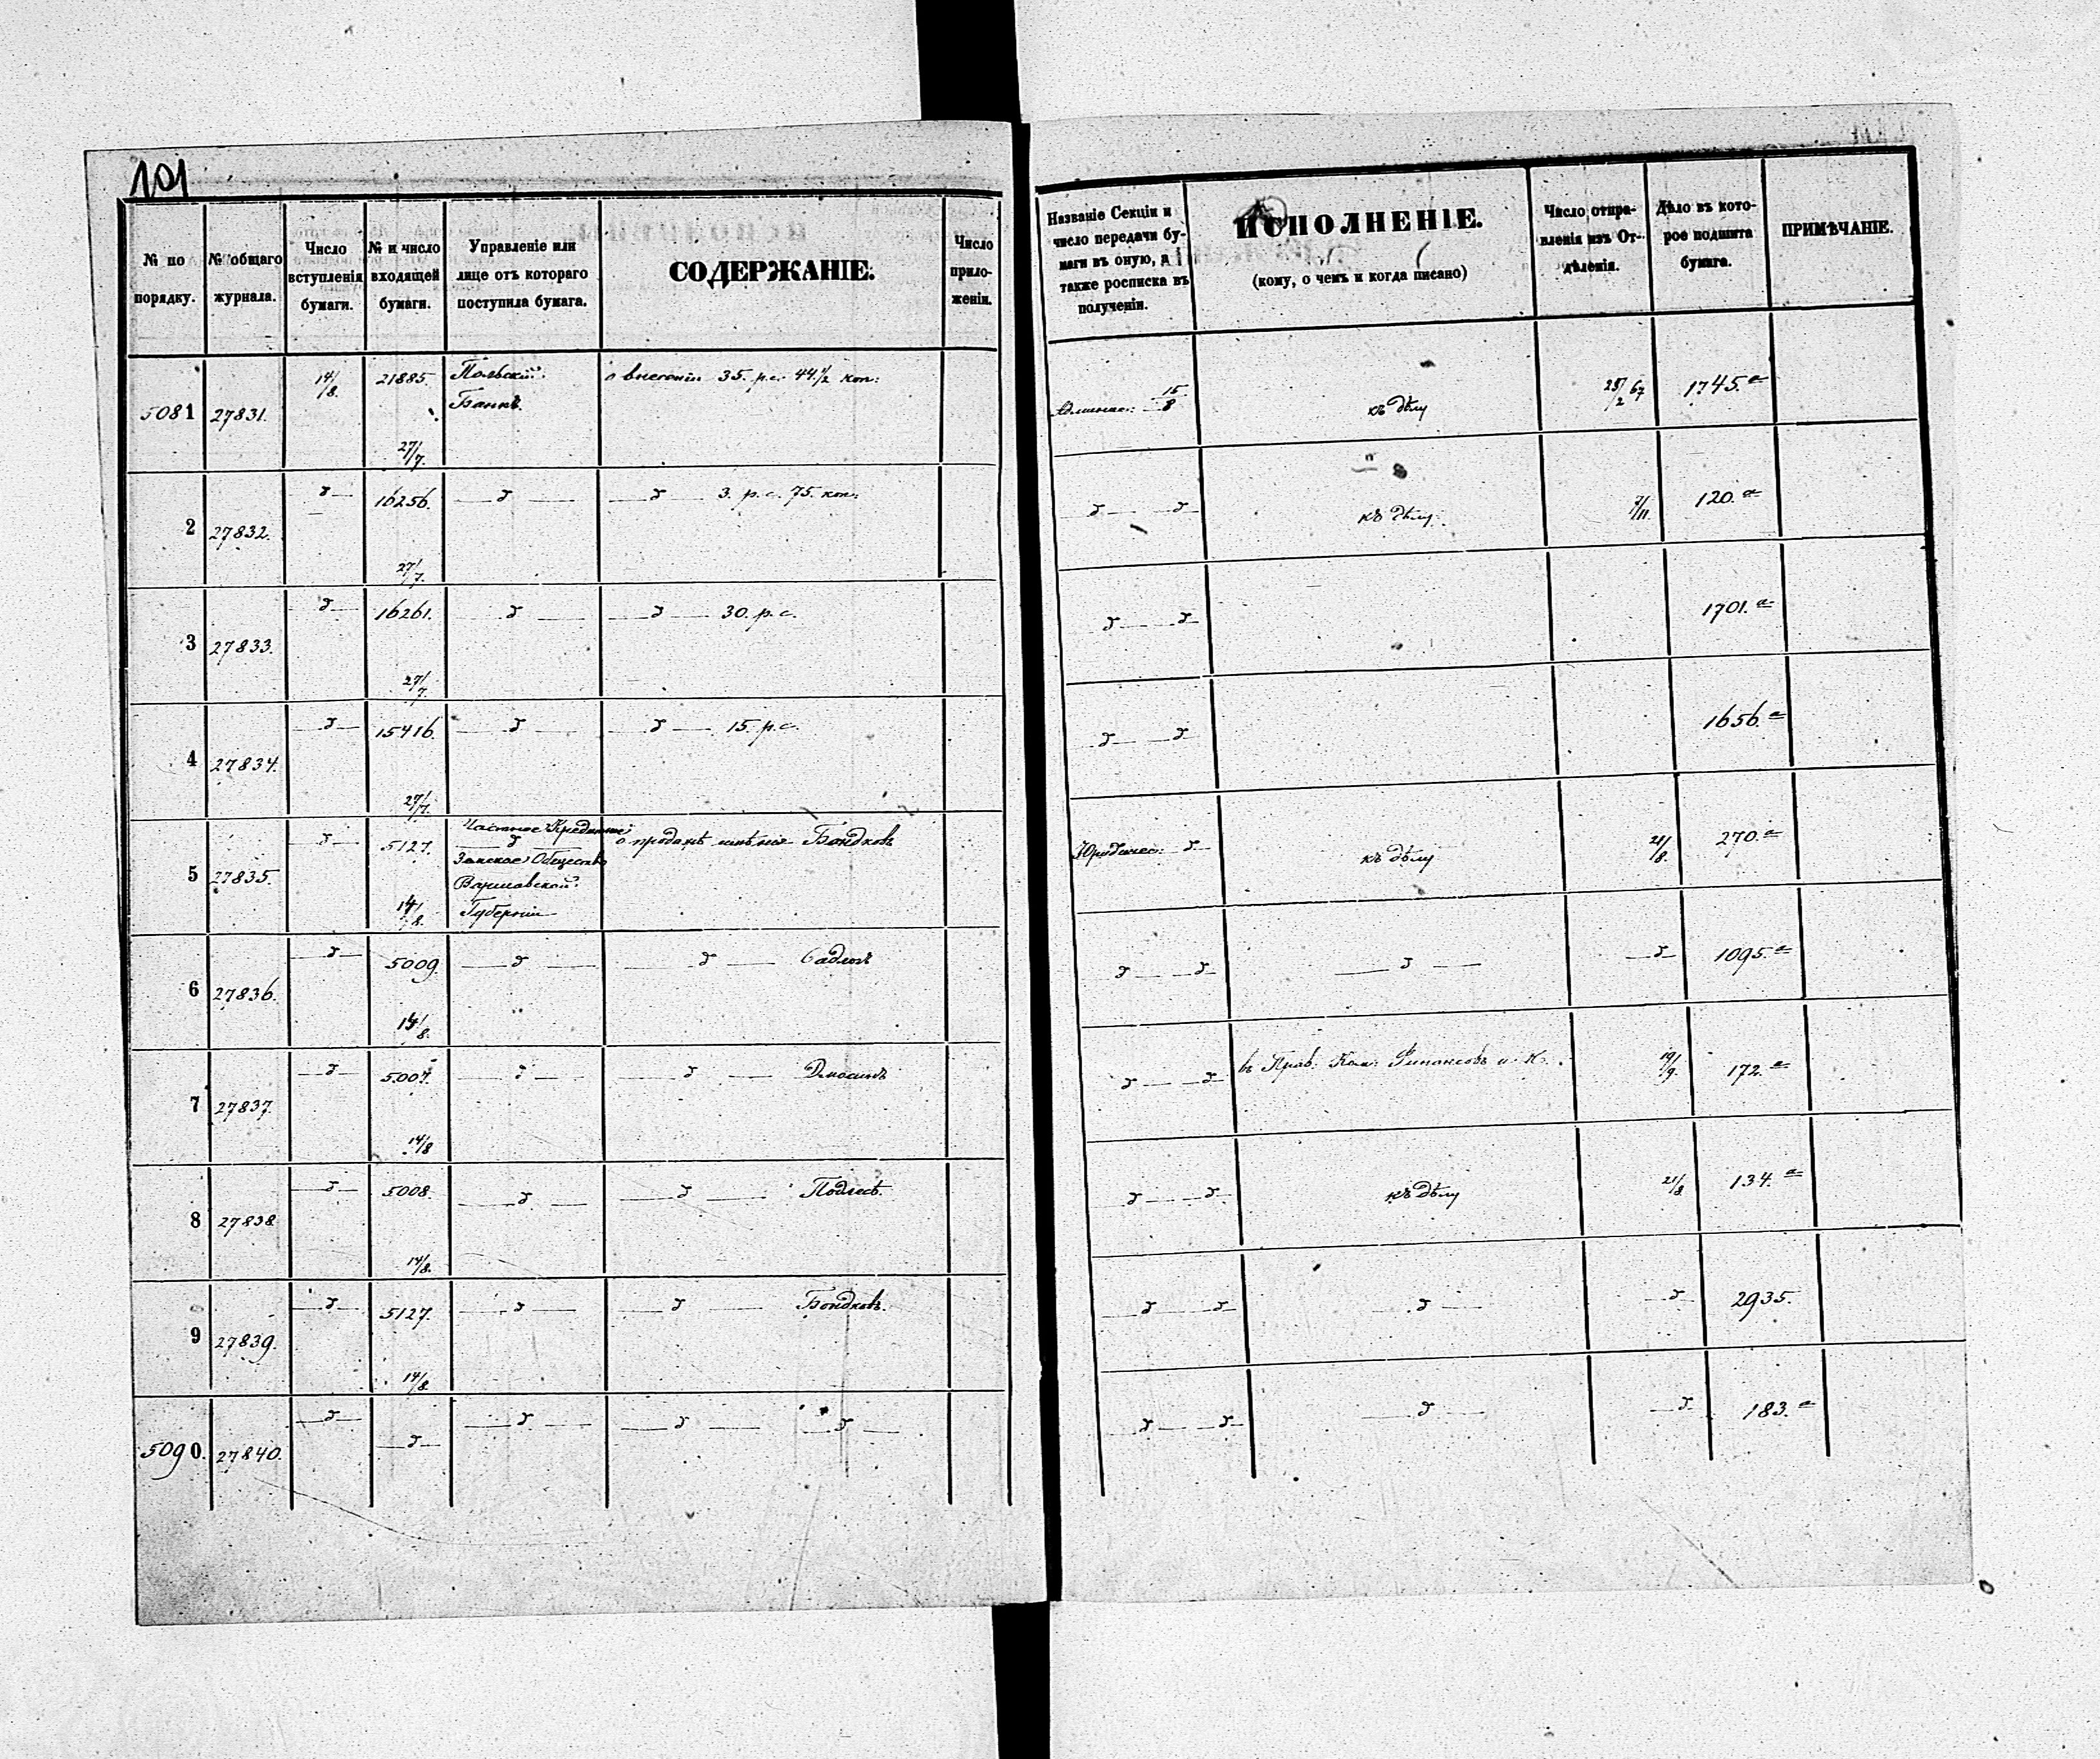 101
№ по порядку.
№ общаго журнала.
Число вступленія бумаги.
№ и число входящей бумаги.
Управленіе или лице отъ котораго поступила бумага.
СОДЕРЖАНІЕ.
Число прило-женія.
Названіе Секціи и число передачи бу-маги въ оную, а также росписка въ полученіи.
ИСПОЛНЕНІЕ.
(кому, о чемъ и когда писано)
Число отпра-вленія изъ От-дѣленія.
Дѣло въ кото-рое подшита бумага.
ПРИМѢЧАНІЕ.
5081 27831. 14/8. 21885. 27/7. Польскій Банкъ. о внесеніи 35. р.с. 44.½ коп: 15/8 къ дѣлу 28/2 67 1745.а
2 27832. д 16256. 27/7. д д 3. р.с. 75. коп. д д къ дѣлу 7/11. 120.а
3 27833. д 16261. 27/7. д д 30. р.с. д д 1701.а
4 27834. д 15416. 27/7. д д 15. р.с. д д 1656.а
5 27835. д 5127. 14/8. Частное Кредитное Земское Общество Варшавской Губерніи о продажѣ имѣнія Бондковъ Юридичес: д къ дѣлу 21/8. 270.а
6 27836. д 5009. 14/8. д д д д д д 1095.а
7 27837. д 5007. 14/8 д д д д въ Прав. Ком. Финансовъ и К. 19/9. 172.а
8 27838 д 5008. 14/8. д д Подлесѣ. д д къ дѣлу 21/8 134.а
9 27839. д 5127. 14/8. д д Бондковъ. д д д д 2935.
5090. 27840. д д д д д д д д д 183.а